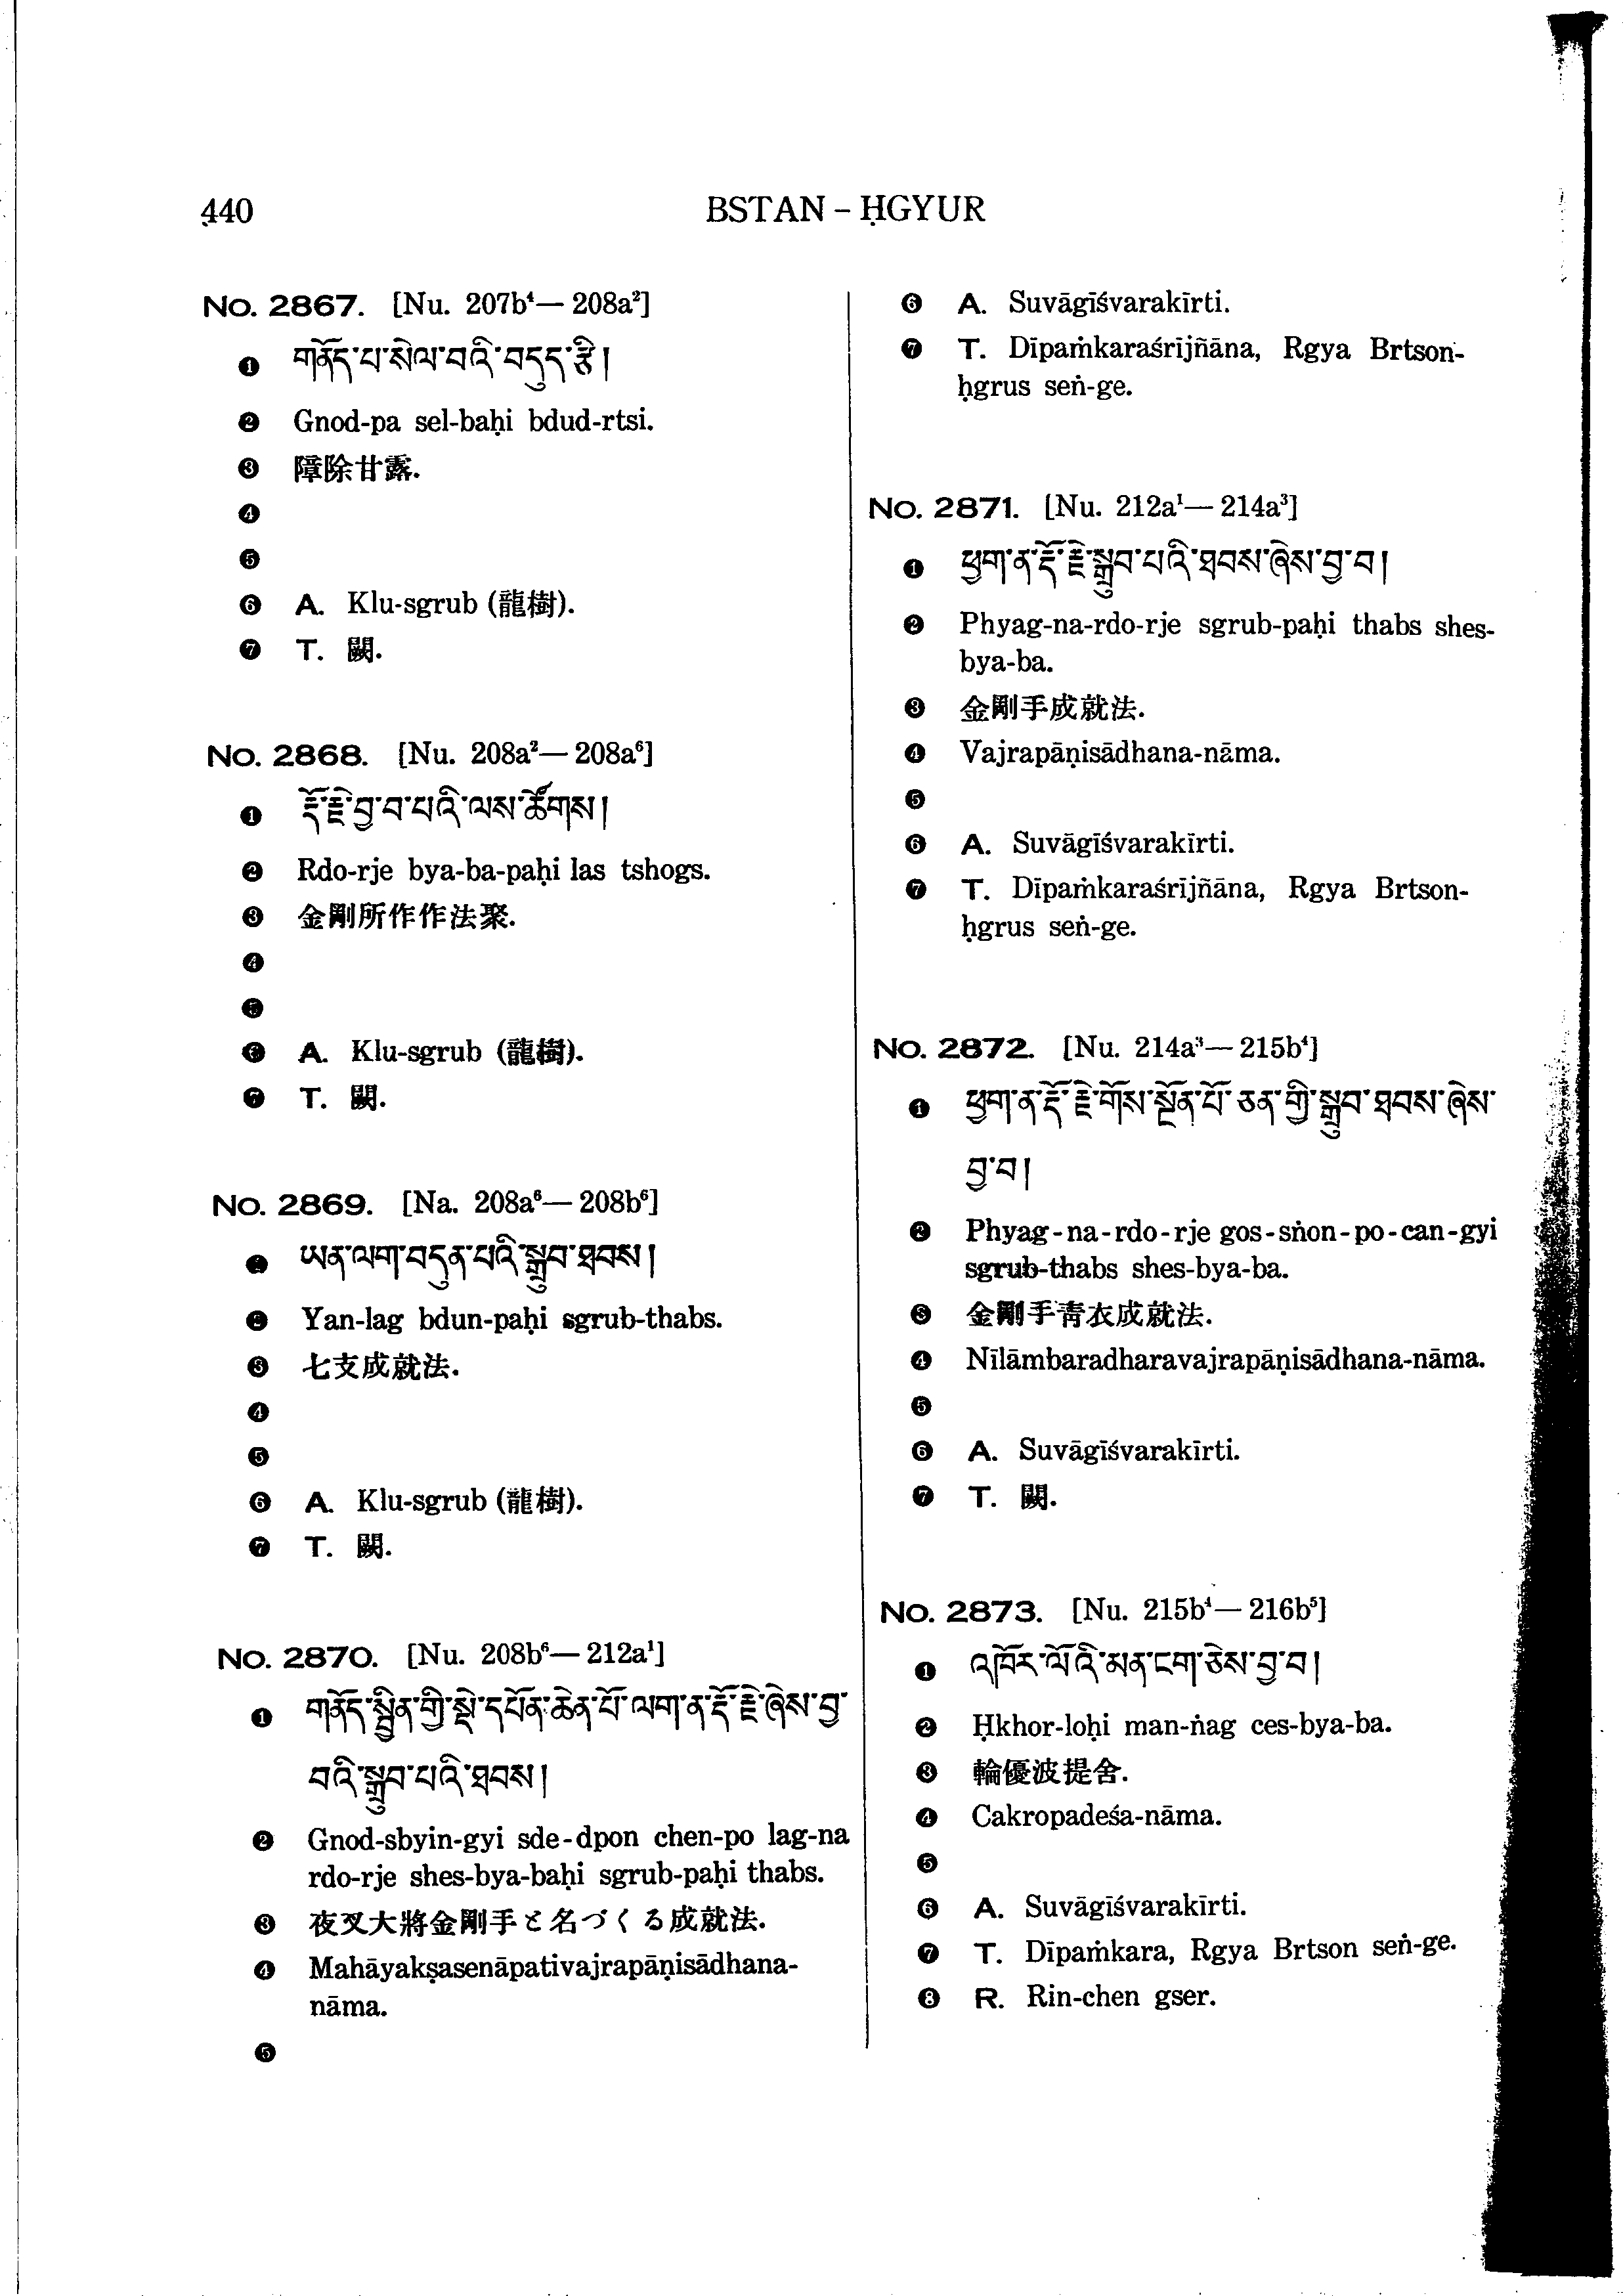 440
BSTAN – ḤGYUR
No. 2867. [Nu. 207b⁴— 208a²]
❶ གནོད་པ་སེལ་བའི་བདུད་རྩི།
❷ Gnod-pa sel-baḥi bdud-rtsi.
❸ 障除甘露.
❹
❺
❻ A. Klu-sgrub (龍樹).
❼ T. 闕.
No. 2868. [Nu. 208a²— 208a⁶]
❶ རྡོ་རྗེ་བྱ་བ་པའི་ལས་ཚོགས།
❷ Rdo-rje bya-ba-paḥi las tshogs.
❸ 金剛所作作法聚.
❹
❺
❻ A. Klu-sgrub (龍樹).
❼ T. 闕.
No. 2869. [Na. 208a⁶— 208b⁶]
❶ ཡན་ལག་བདུན་པའི་སྒྲུབ་ཐབས།
❷ Yan-lag bdun-paḥi sgrub-thabs.
❸ 七支成就法.
❹
❺
❻ A. Klu-sgrub (龍樹).
❼ T. 闕.
No. 2870. [Nu. 208b⁶— 212a¹]
❶ གནོད་སྦྱིན་གྱི་སྡེ་དཔོན་ཆེན་པོ་ལག་ན་རྡོ་རྗེ་ཞེས་བྱ་
བའི་སྒྲུབ་པའི་ཐབས།
❷ Gnod-sbyin-gyi sde-dpon chen-po lag-na
rdo-rje shes-bya-baḥi sgrub-paḥi thabs.
❸ 夜叉大將金剛手と名づくる成就法.
❹ Mahāyakṣasenāpativajrapāṇisādhana-
nāma.
❺
❻ A. Suvāgīśvarakīrti.
❼ T. Dīpaṁkaraśrījñāna, Rgya Brtson-
ḥgrus seṅ-ge.
No. 2871. [Nu. 212a¹— 214a³]
❶ ཕྱག་ན་རྡོ་རྗེ་སྒྲུབ་པའི་ཐབས་ཞེས་བྱ་བ།
❷ Phyag-na-rdo-rje sgrub-paḥi thabs shes-
bya-ba.
❸ 金剛手成就法.
❹ Vajrapāṇisādhana-nāma.
❺
❻ A. Suvāgīśvarakīrti.
❼ T. Dīpaṁkaraśrījñāna, Rgya Brtson-
ḥgrus seṅ-ge.
No. 2872. [Nu. 214a³— 215b⁴]
❶ ཕྱག་ན་རྡོ་རྗེ་གོས་སྔོན་པོ་ཅན་གྱི་སྒྲུབ་ཐབས་ཞེས་
བྱ་བ།
❷ Phyag-na-rdo-rje gos-sṅon-po-can-gyi
sgrub-thabs shes-bya-ba.
❸ 金剛手靑衣成就法.
❹ Nīlāmbaradharavajrapāṇisādhana-nāma.
❺
❻ A. Suvāgīśvarakīrti.
❼ T. 闕.
No. 2873. [Nu. 215b⁴— 216b⁵]
❶ འཁོར་ལོའི་མན་ངག་ཅེས་བྱ་བ།
❷ Ḥkhor-loḥi man-ṅag ces-bya-ba.
❸ 輪優波提舍.
❹ Cakropadeśa-nāma.
❺
❻ A. Suvāgīśvarakīrti.
❼ T. Dīpaṁkara, Rgya Brtson seṅ-ge.
❽ R. Rin-chen gser.